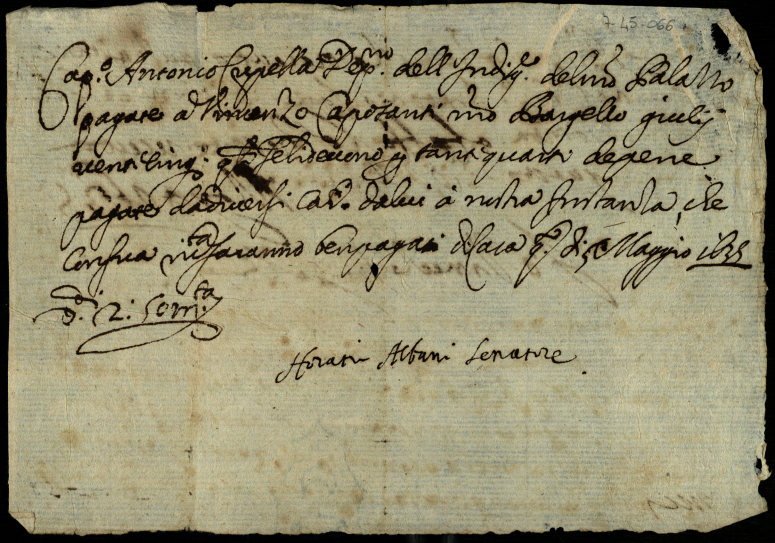 7-45-066
Cap.o Antonio Cupella Dep.no dell' Indig.e del nro Palazzo
pagate a Vincenzo Capotanti nro Bargello giulij
venticinq. q.li seli devono p tanti quarti de pene
pagate da diversi Cav. da lui à nostra instanza, che
con sua ric.ta saranno ben pagati di Casa q.o dì 5 Maggio 1635
d. 2: 50 m.ta
Horatio Albani Senatore